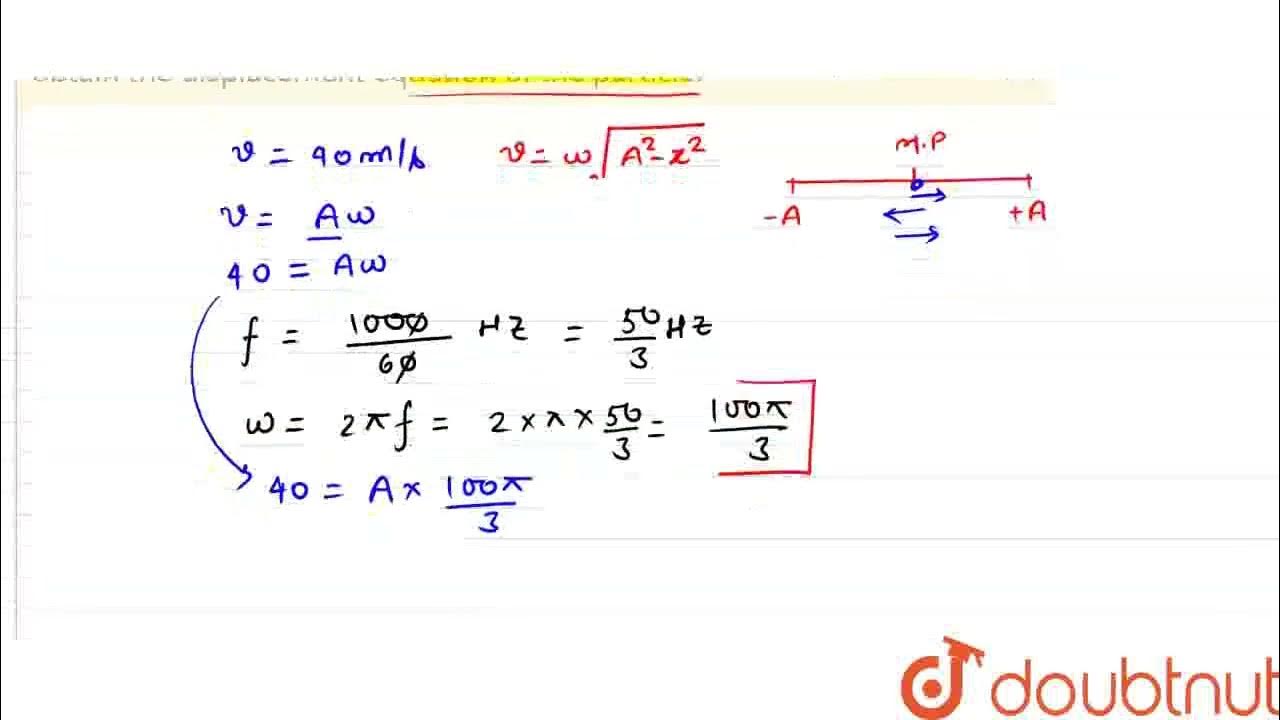 obtain the displacement equation of the particle.
v = 40 m/s v = ω√(A²-x²) M.P
-A +A
v = Aω
40 = Aω
f = 1000/60 HZ = 50/3 HZ
ω = 2πf = 2×π×50/3 = 100π/3
40 = A× 100π/3
doubtnut